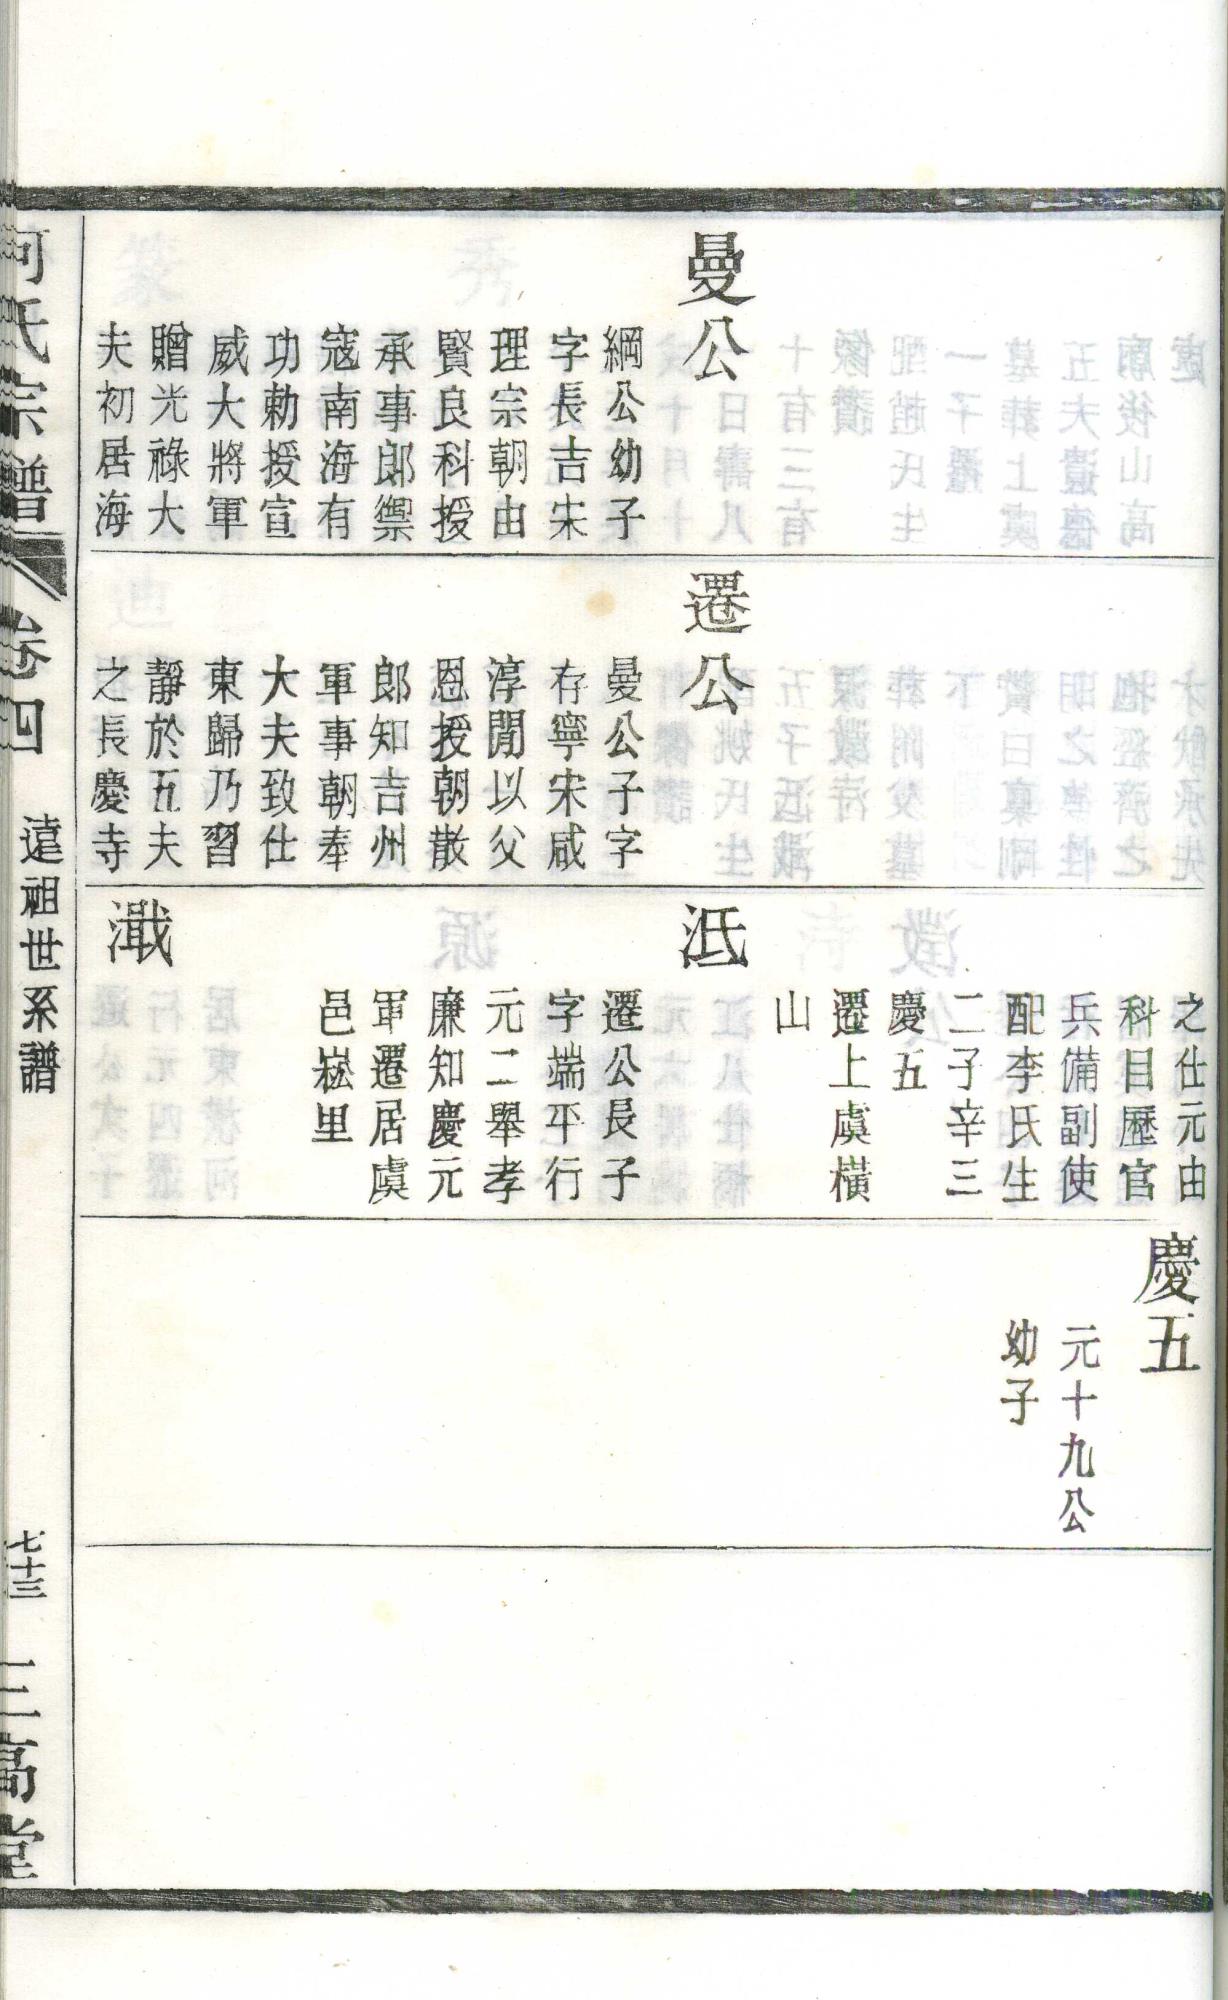 曼公
綱公幼子
字長吉宋
理宗朝由
賢良科授
承事郎禦
寇南海有
功勅授宣
威大將軍
贈光祿大
夫初居海
遷公
曼公子字
存寧宋咸
淳閒以父
恩授朝散
郎知吉州
軍事朝奉
大夫致仕
東歸乃習
靜於五夫
之長慶寺
之仕元由
科目歷官
兵備副使
配李氏生
二子辛三
慶五
遷上虞橫
山
泜
遷公長子
字端平行
元二舉孝
廉知慶元
軍遷居虞
邑崧里
濈
慶五
元十九公
幼子
何氏宗譜
卷四
遠祖世系譜
七十三
三高堂